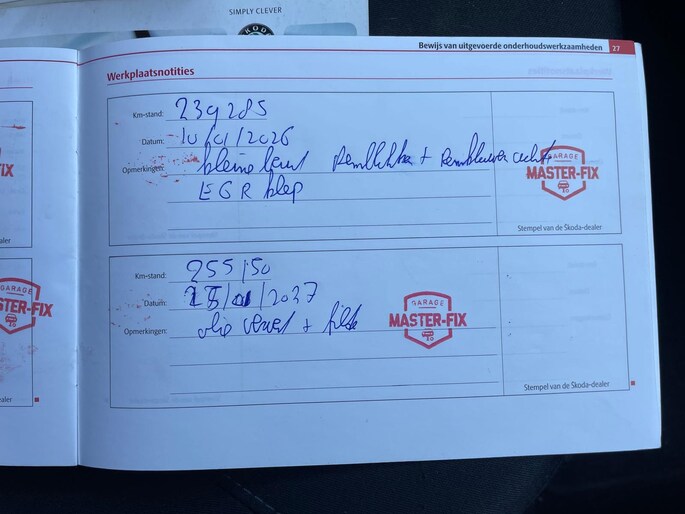 SIMPLY CLEVER
SKODA
Bewijs van uitgevoerde onderhoudswerkzaamheden 27
Werkplaatsnotities
Km-stand: 239285
Datum: 10/01/2026
Opmerkingen: kleine beurt Remblokken + achter
EGR klep
GARAGE
MASTER-FIX
Stempel van de Škoda-dealer
Km-stand: 255150
Datum: /2027
Opmerkingen: olie + filter
GARAGE
MASTER-FIX
Stempel van de Škoda-dealer
IX
aler
GARAGE
STER-FIX
ealer